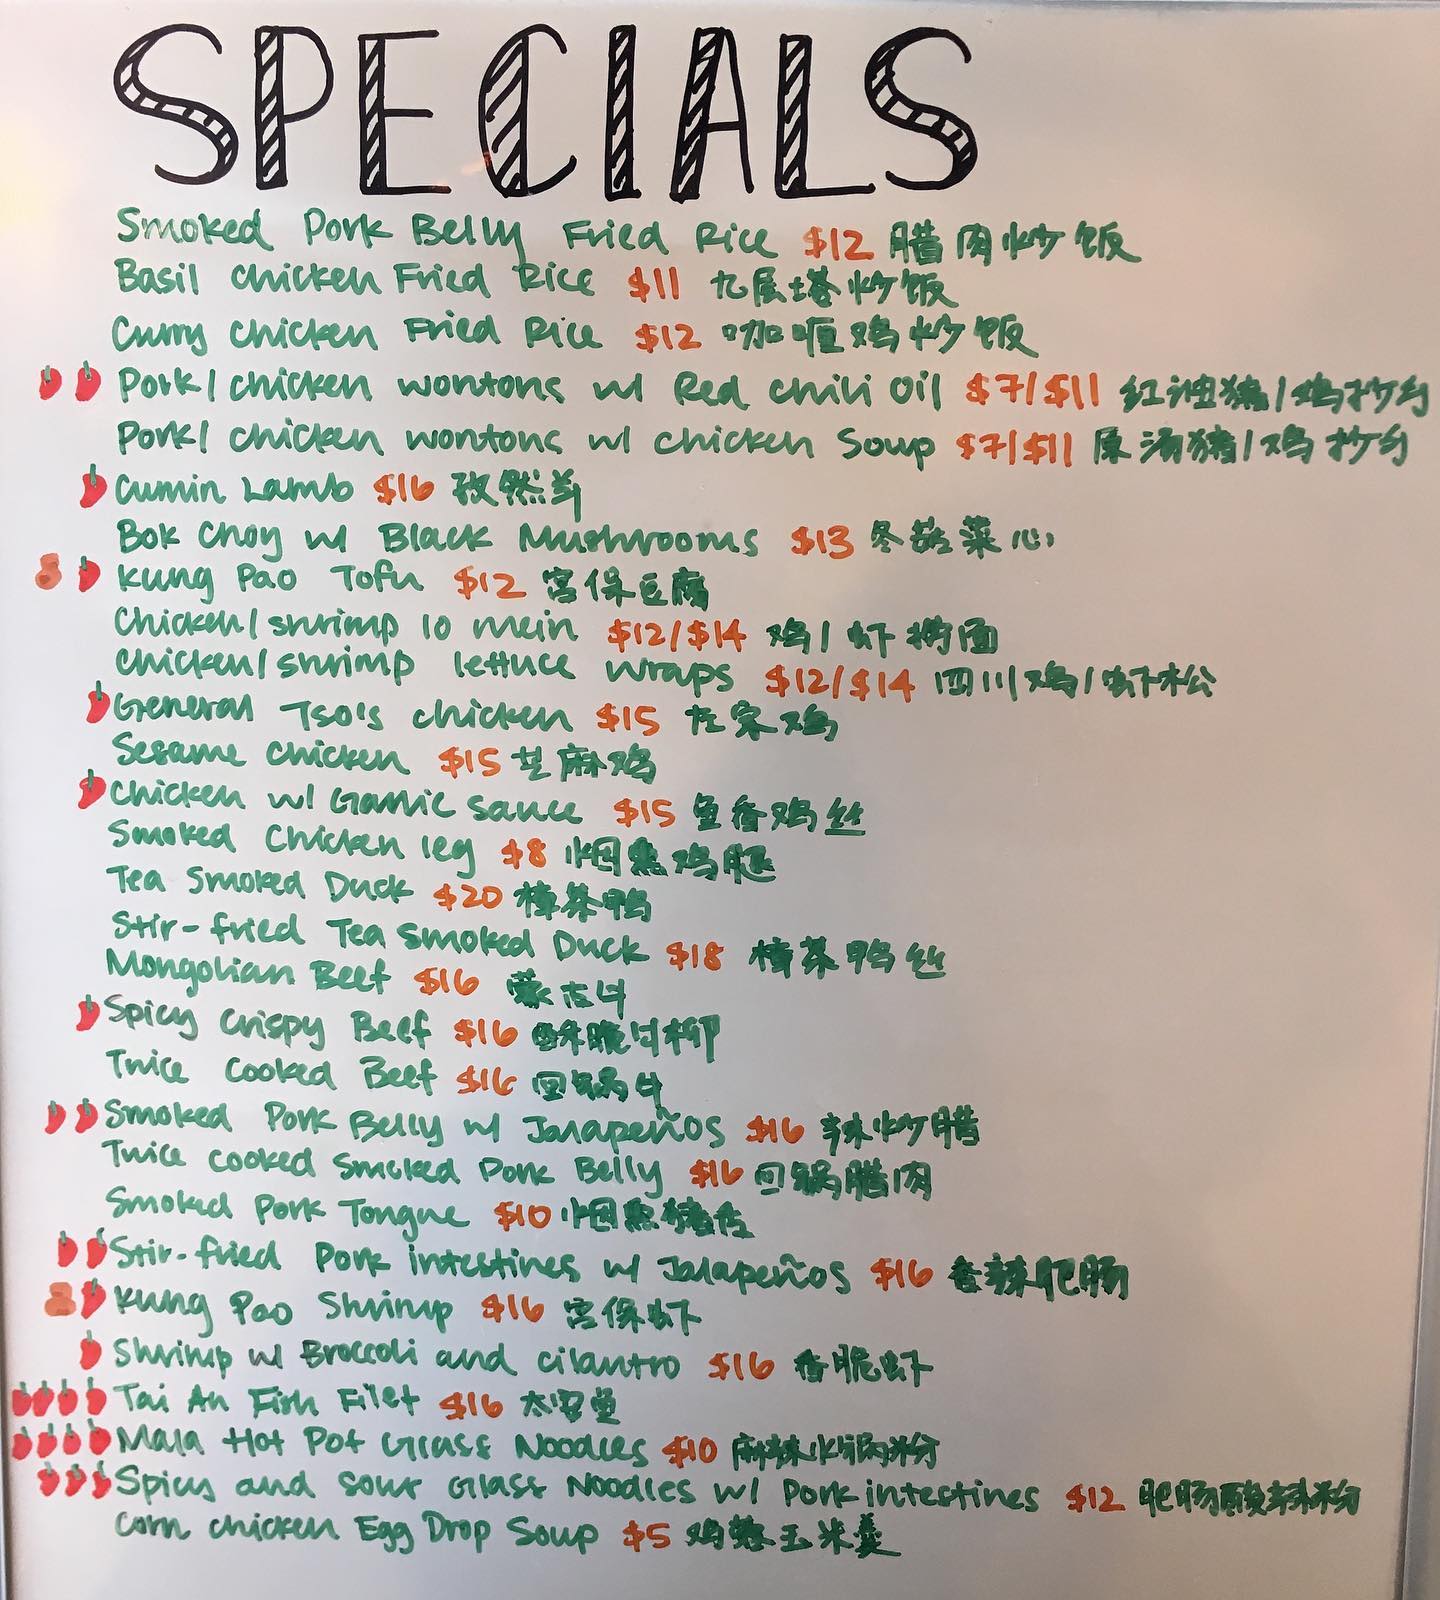 SPECIALS
Smoked Pork Belly Fried Rice $12 腊肉炒饭
Basil Chicken Fried Rice $11 九层塔炒饭
Curry Chicken Fried Rice $12 咖喱鸡炒饭
Pork/chicken wontons w/ Red Chili Oil $7/$11 红油猪/鸡抄手
Pork/chicken wontons w/ chicken Soup $7/$11 原汤猪/鸡抄手
Cumin Lamb $16 孜然羊
Bok Choy w/ Black Mushrooms $13 冬菇菜心
Kung Pao Tofu $12 宫保豆腐
Chicken/shrimp lo mein $12/$14 鸡/虾捞面
Chicken/shrimp lettuce wraps $12/$14 四川鸡/虾松
General Tso's chicken $15 左宗鸡
Sesame Chicken $15 芝麻鸡
Chicken w/ Garlic Sauce $15 鱼香鸡丝
Smoked Chicken leg $8 烟熏鸡腿
Tea Smoked Duck $20 樟茶鸭
Stir-fried Tea Smoked Duck $18 樟茶鸭丝
Mongolian Beef $16 蒙古牛
Spicy Crispy Beef $16 酥脆牛柳
Twice Cooked Beef $16 回锅牛
Smoked Pork Belly w/ Jalapeños $16 辣炒腊
Twice Cooked Smoked Pork Belly $16 回锅腊肉
Smoked Pork Tongue $10 烟熏猪舌
Stir-fried Pork intestines w/ Jalapeños $16 香辣肥肠
Kung Pao Shrimp $16 宫保虾
Shrimp w/ Broccoli and cilantro $16 香脆虾
Tai An Fish Filet $16 太安鱼
Mala Hot Pot Glass Noodles $10 麻辣火锅粉
Spicy and Sour Glass Noodles w/ Pork intestines $12 肥肠酸辣粉
Corn Chicken Egg Drop Soup $5 鸡蓉玉米羹